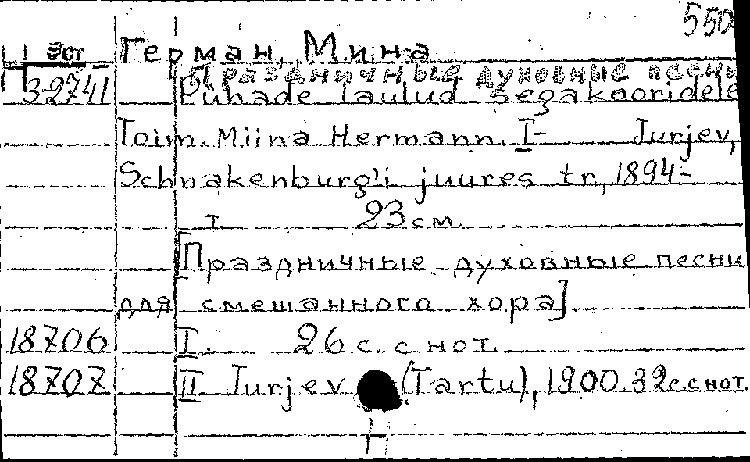 550
Эст Герман, Мина
Праздничные духовные песни
3-2741 Pühade laulud segakooridele
Toim. Miina Hermann. I- Jurjev,
Schnakenburg'i juures tr., 1894-
т. 23 см.
[Праздничные духовные песни
для смешанного хора].
18706 I. 26 с. с нот.
18707 II Jurjev (Tartu), 1900. 32 с. с нот.